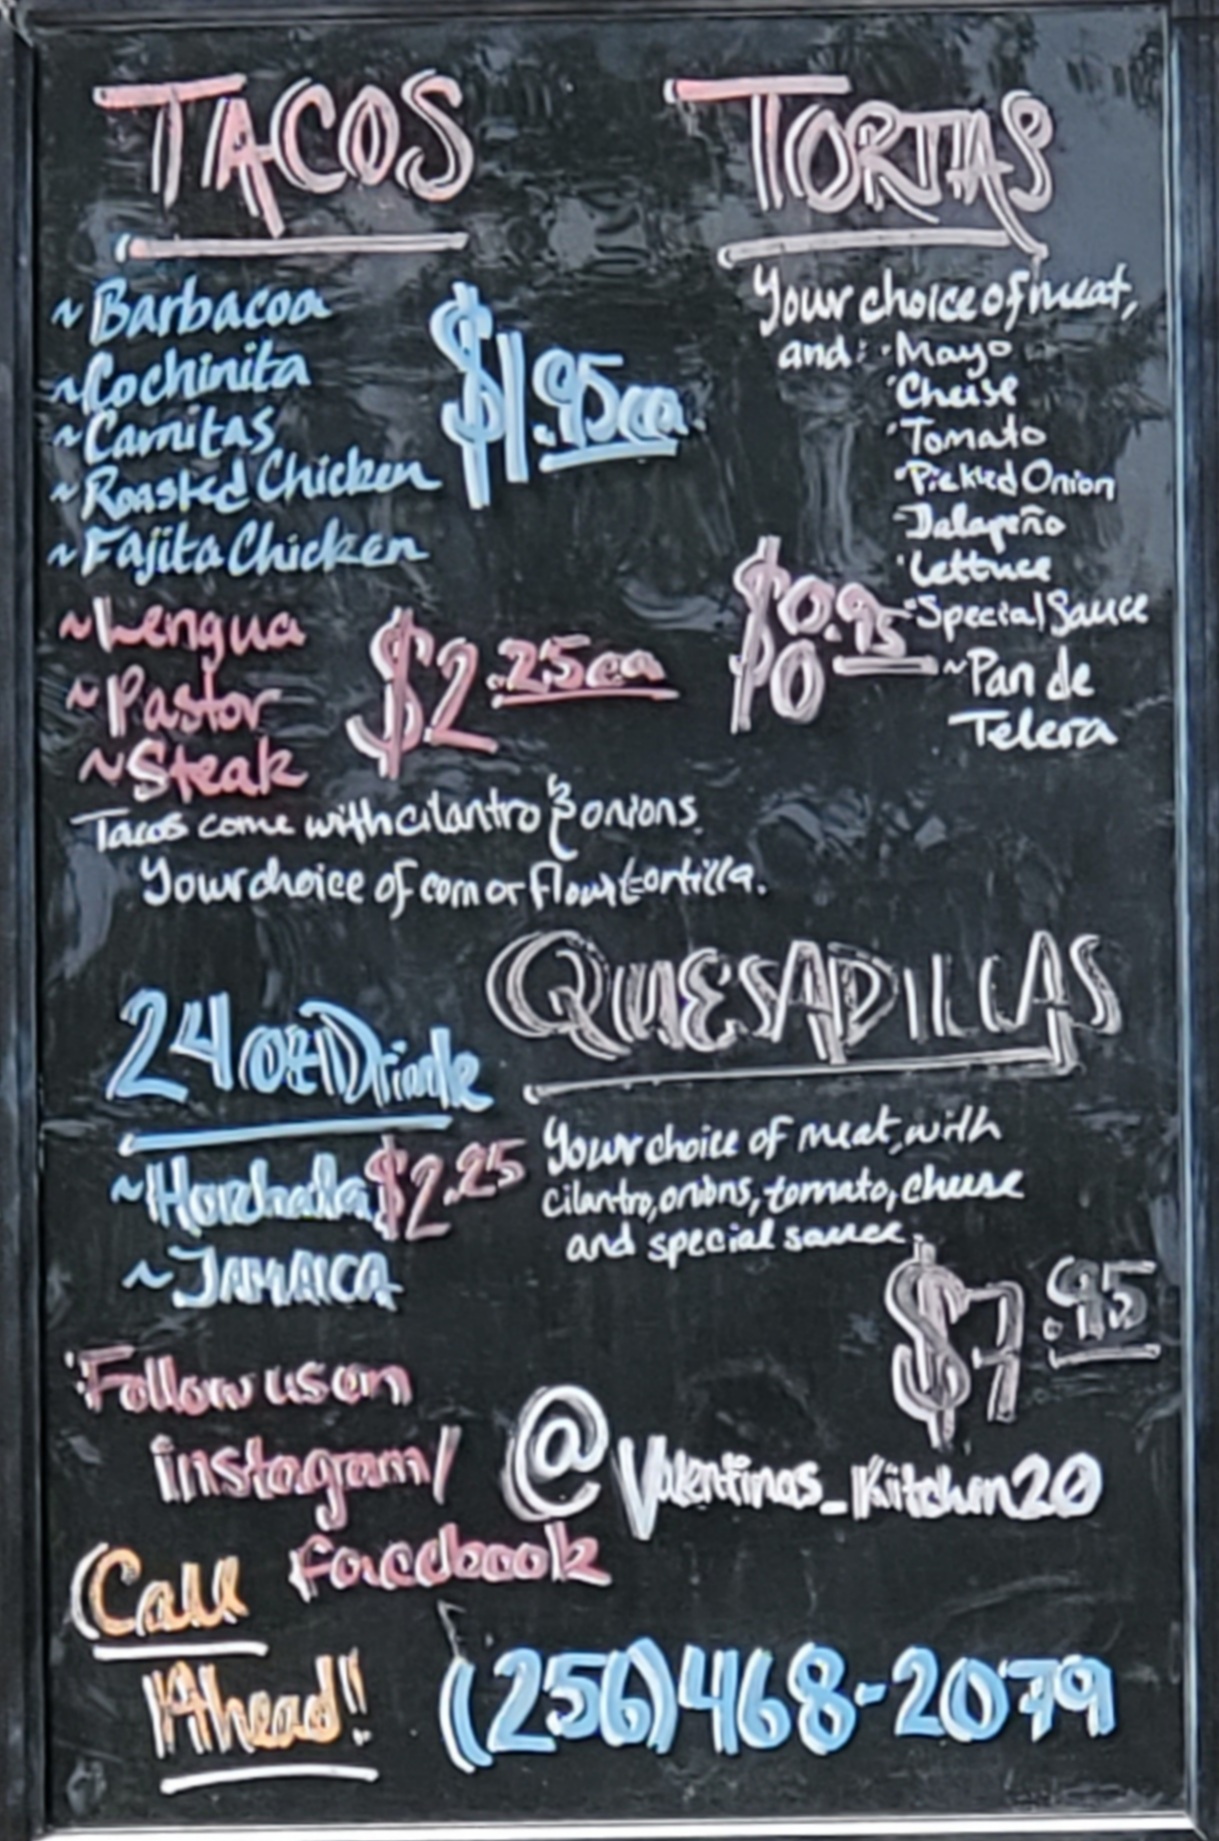 TACOS
~Barbacoa
~Cochinita
~Carnitas
~Roasted Chicken
~Fajita Chicken
$1.95ea
~Lengua
~Pastor
~Steak
$2.25ea
Tacos come with cilantro & onions.
Your choice of corn or flour tortilla.
TORTAS
Your choice of meat,
and: ·Mayo
·Cheese
·Tomato
·Pickled Onion
·Jalapeño
·Lettuce
·Special Sauce
~Pan de
Telera
$8.95
24oz Drink
~Horchata $2.25
~JAMAICA
QUESADILLAS
Your choice of meat, with
cilantro, onions, tomato, cheese
and special sauce.
$7.95
Follow us on
instagram/
facebook
@Valentinas_Kitchen20
Call
Ahead!!
(256)468-2079